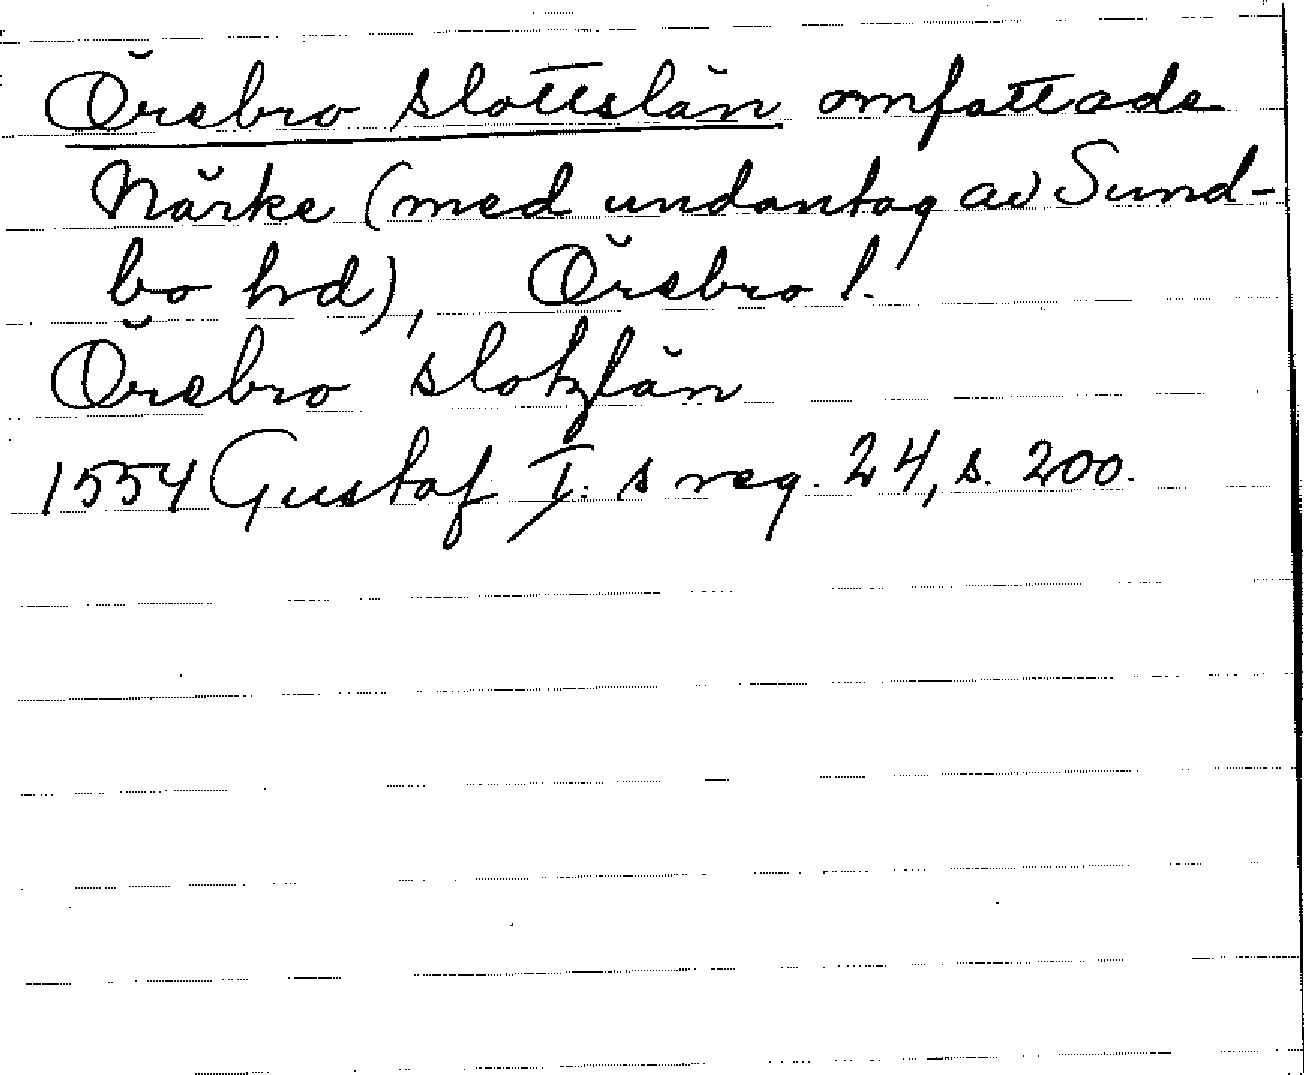 Örebro slottslän omfattade
Närke (med undantag av Sund-
bo hd), Örebro l.
Örebro slotzlän
1554 Gustaf I:s reg. 24, s. 200.